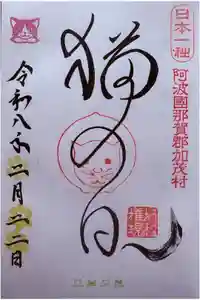 日本一社
阿波國那賀郡加茂村
猫の日
令和八年二月二二日